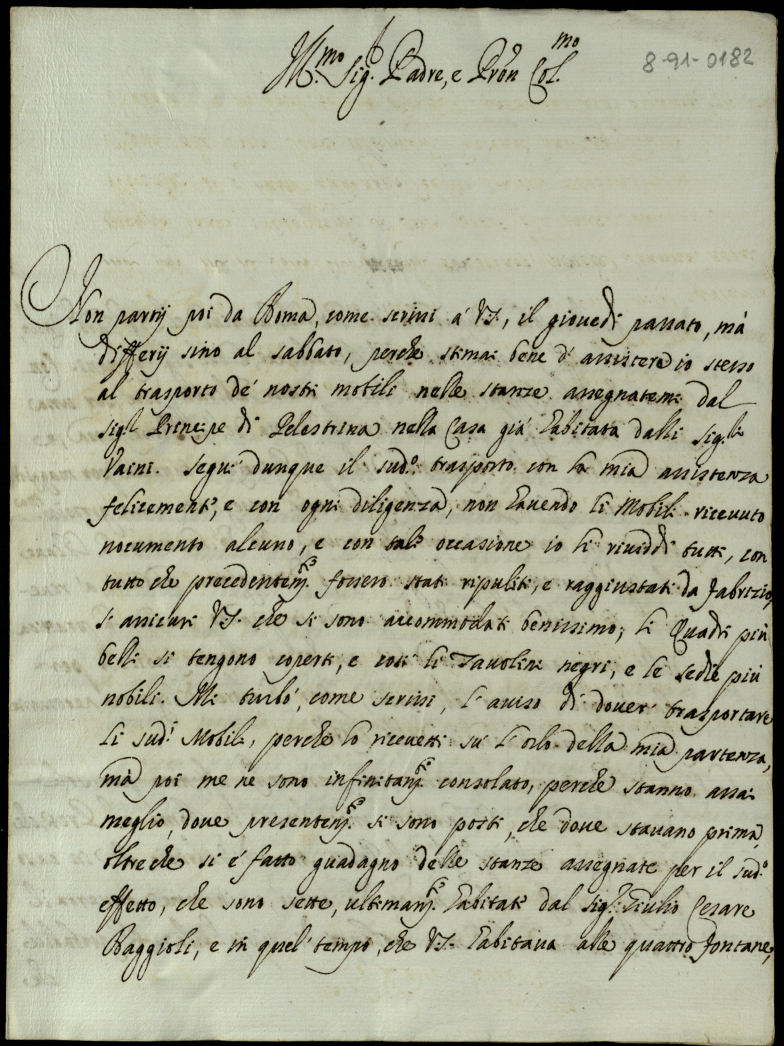 Ill.mo Sig.r Padre, e Pron Col.mo
8-91-0182
Non partij poi da Roma, come scrissi á VS., il giouedi passato, mà
differij sino al sabbato, perche stimai bene d' assistere io stesso
al trasporto de' nostri mobili nelle stanze assegnatemi dal
sig.r Prencipe di Pelestrina nella Casa giá habitata dalli sig.ri
Vaini. Segui dunque il sud.o trasporto con la mia assistenza
felicement', e con ogni diligenza, non havendo li Mobili riceuuto
nocumento alcuno, e con tale occasione io li riuiddi tutti, con
tutto che precedentem.te fossero stati ripuliti, e raggiustati da Fabrizio,
s' assicuri VS. che si sono accommodati benissimo; li Quadri più
belli si tengono coperti, e cosi li Tauolini negri, e le sedie più
nobili. Mi turbó, come scrissi, l' auiso di douer' trasportare
li sud.i Mobili, perche lo riceuetti sú l'orlo della mia partenza,
mà poi me ne sono infinitam.te consolato, perche stanno assai
meglio, doue presentem.te si sono posti, che doue stauano prima,
oltre che si é fatto guadagno delle stanze assegnate per il sud.o
effetto, che sono sette, ultimam.te habitate dal Sig.r Giulio Cesare
Raggioli, e in quel' tempo, che VS. habitaua alle quattro fontane,